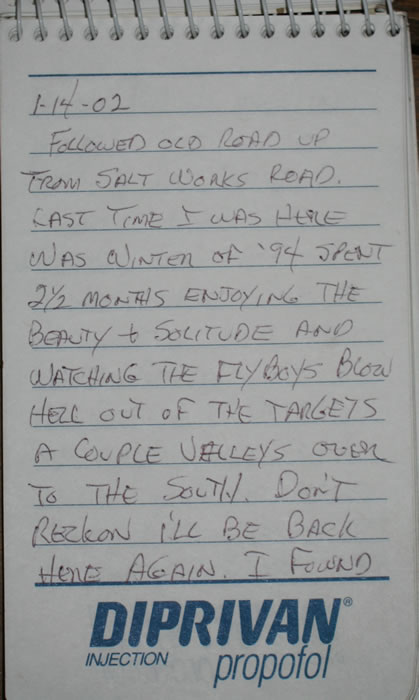 1-14-02
FOLLOWED OLD ROAD UP
FROM SALT WORKS ROAD.
LAST TIME I WAS HERE
WAS WINTER OF '94 SPENT
2½ MONTHS ENJOYING THE
BEAUTY + SOLITUDE AND
WATCHING THE FLYBOYS BLOW
HELL OUT OF THE TARGETS
A COUPLE VALLEYS OVER
TO THE SOUTH. DON'T
RECKON I'LL BE BACK
HERE AGAIN. I FOUND
DIPRIVAN®
INJECTION propofol